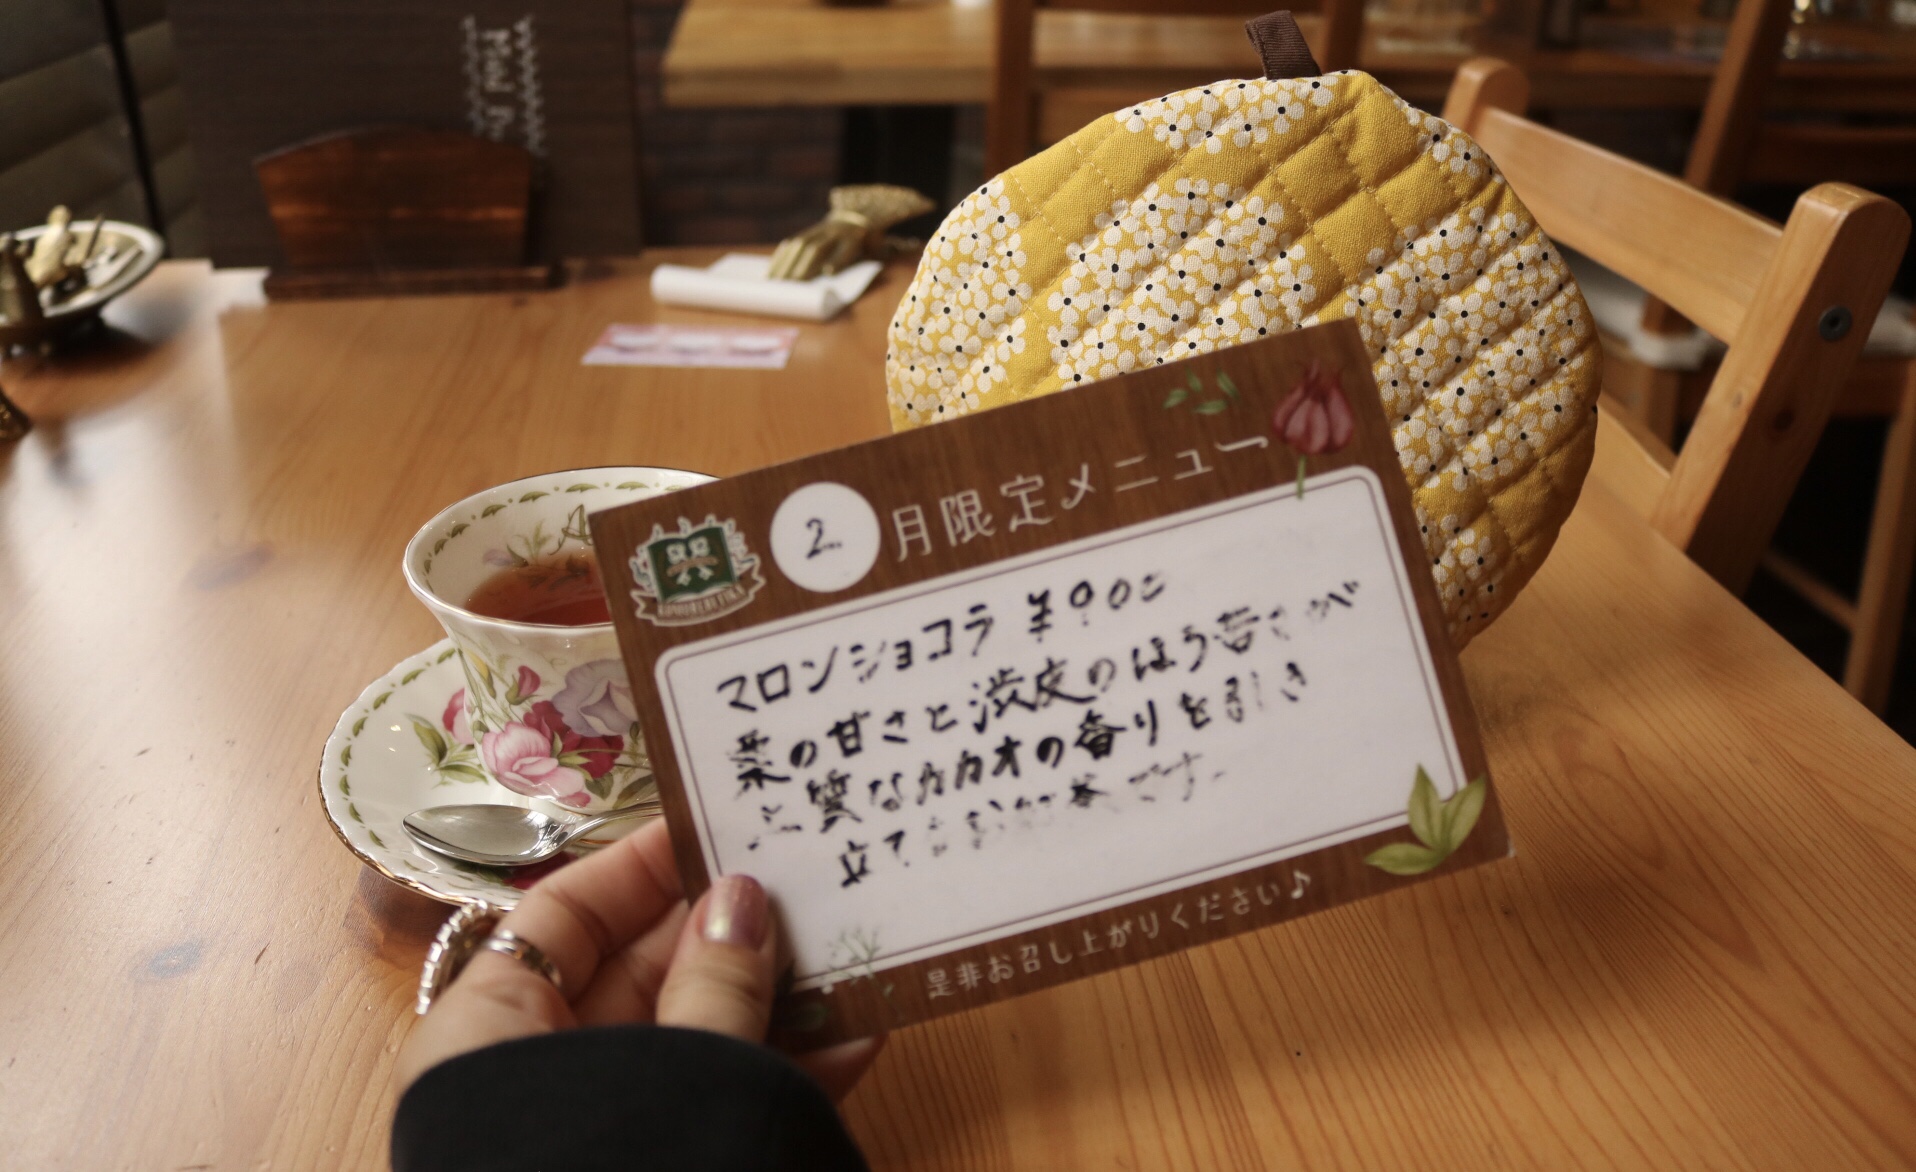 2月限定メニュー
マロンショコラ ¥900
栗の甘さと渋皮のほう苦さが
質なカカオの香りを引き
立て
是非お召し上がりください♪